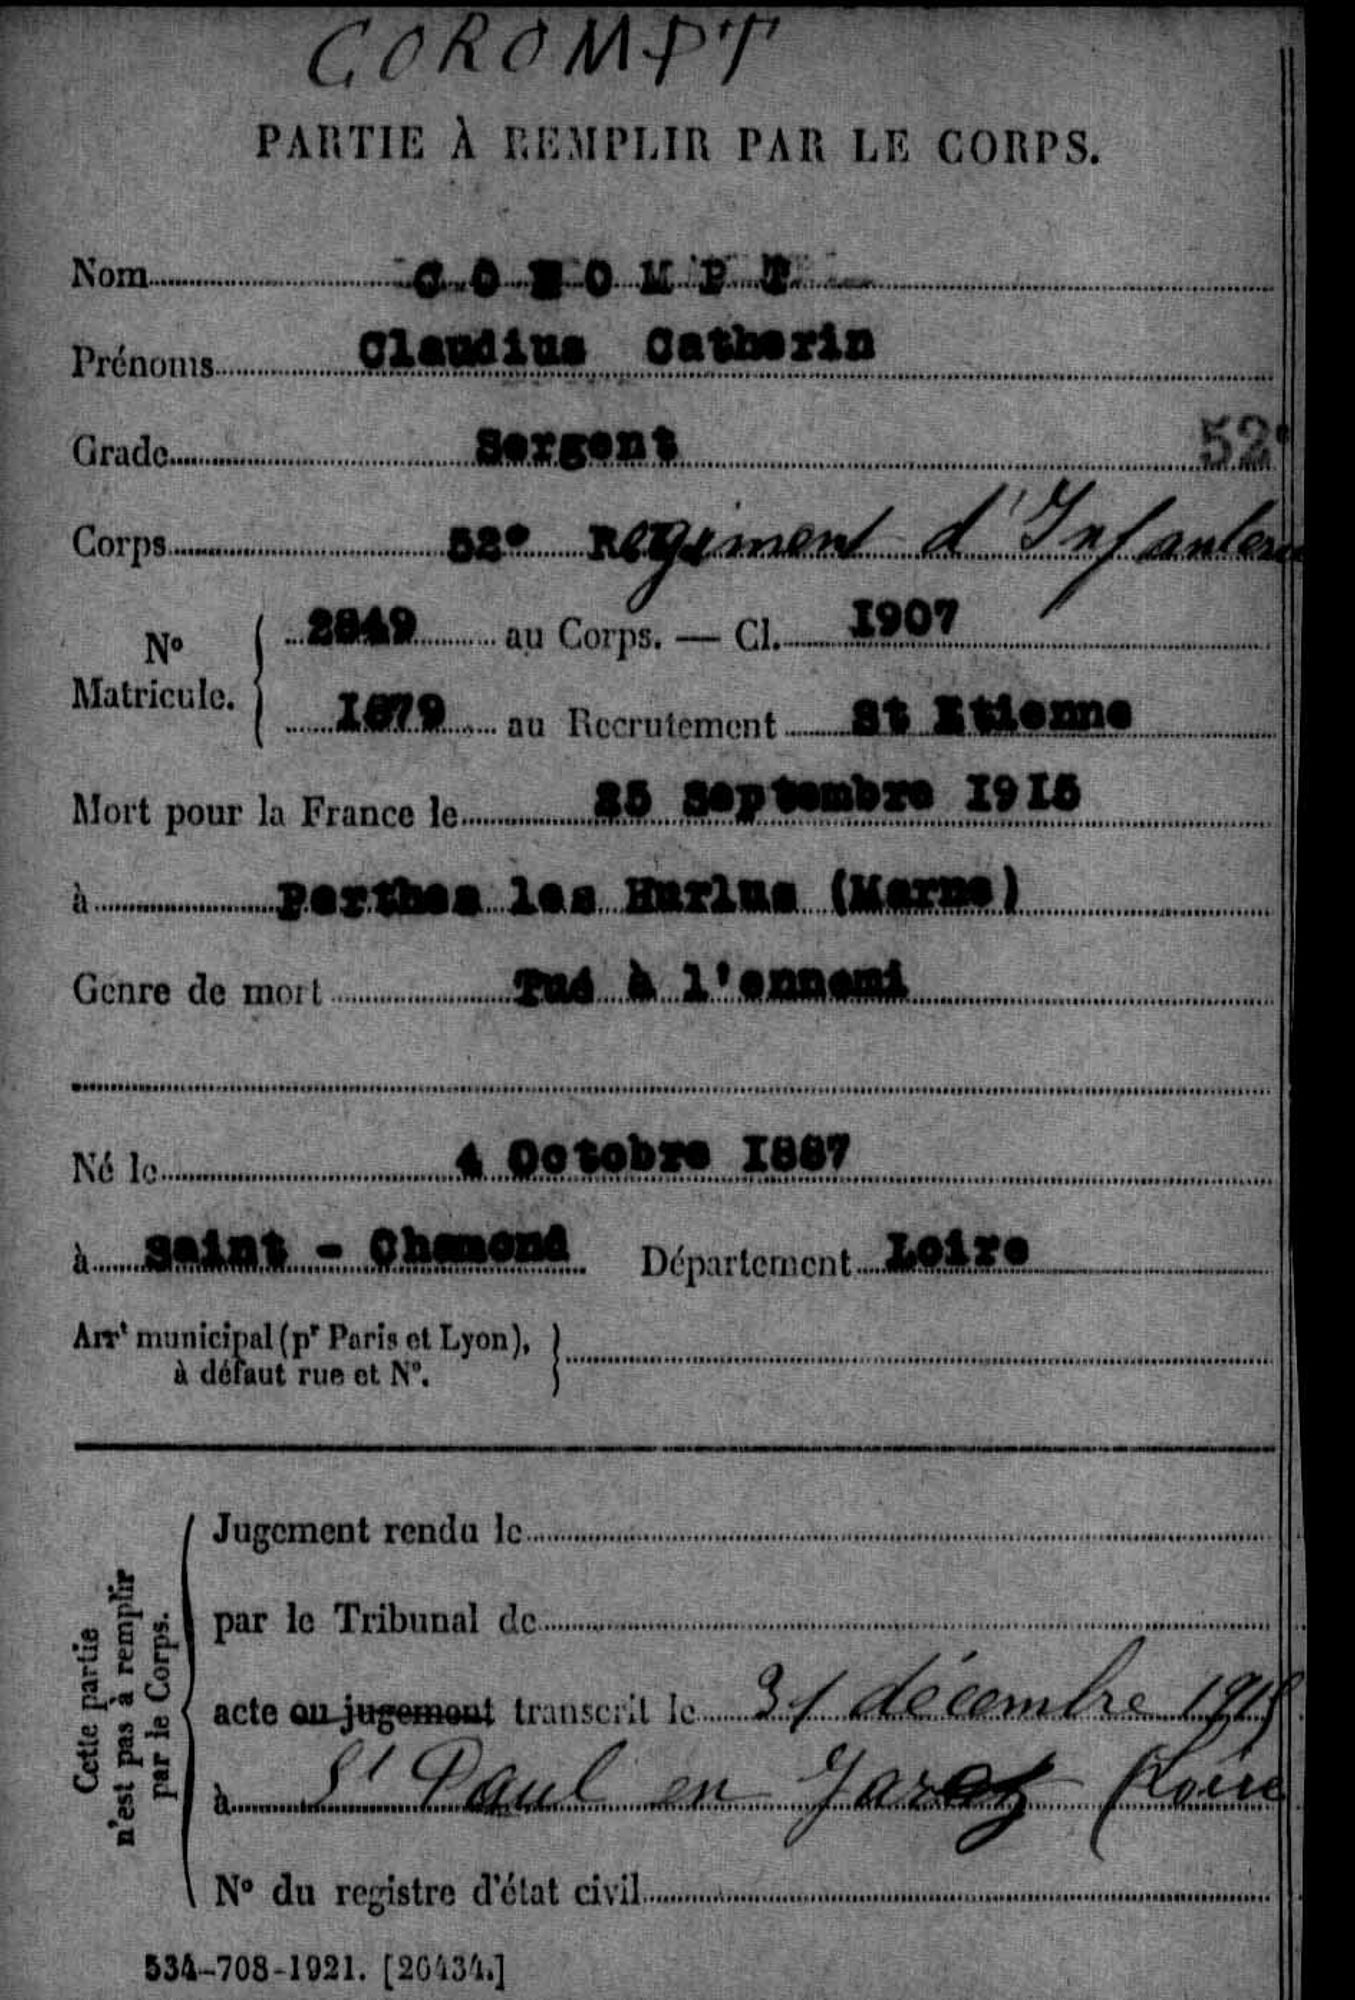 COROMPT
PARTIE À REMPLIR PAR LE CORPS.
Nom COROMPT
Prénoms Claudius Catherin
Grade Sergent 52e
Corps 52e Régiment d'Infanterie
No Matricule. { 2849 au Corps. — Cl. 1907
1679 au Recrutement St Etienne
Mort pour la France le 25 Septembre 1915
à Perthes les Hurlus (Marne)
Genre de mort Tué à l'ennemi
Né le 4 Octobre 1887
à Saint - Chamond Département Loire
Arrt municipal (pr Paris et Lyon),
à défaut rue et No. }
Cette partie
n'est pas à remplir
par le Corps.
Jugement rendu le
par le Tribunal de
acte ou jugement transcrit le 31 décembre
à St Paul en Jarez (Loire
No du registre d'état civil
534-708-1921. [26434.]